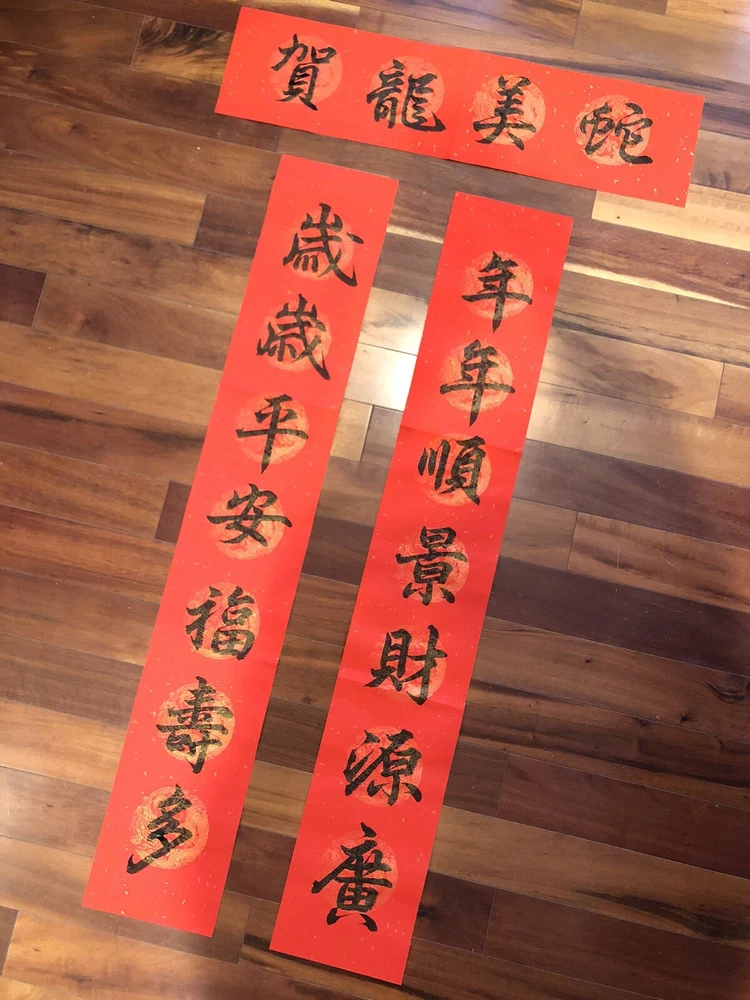 賀龍美蛇
年年順景財源廣
歲歲平安福壽多